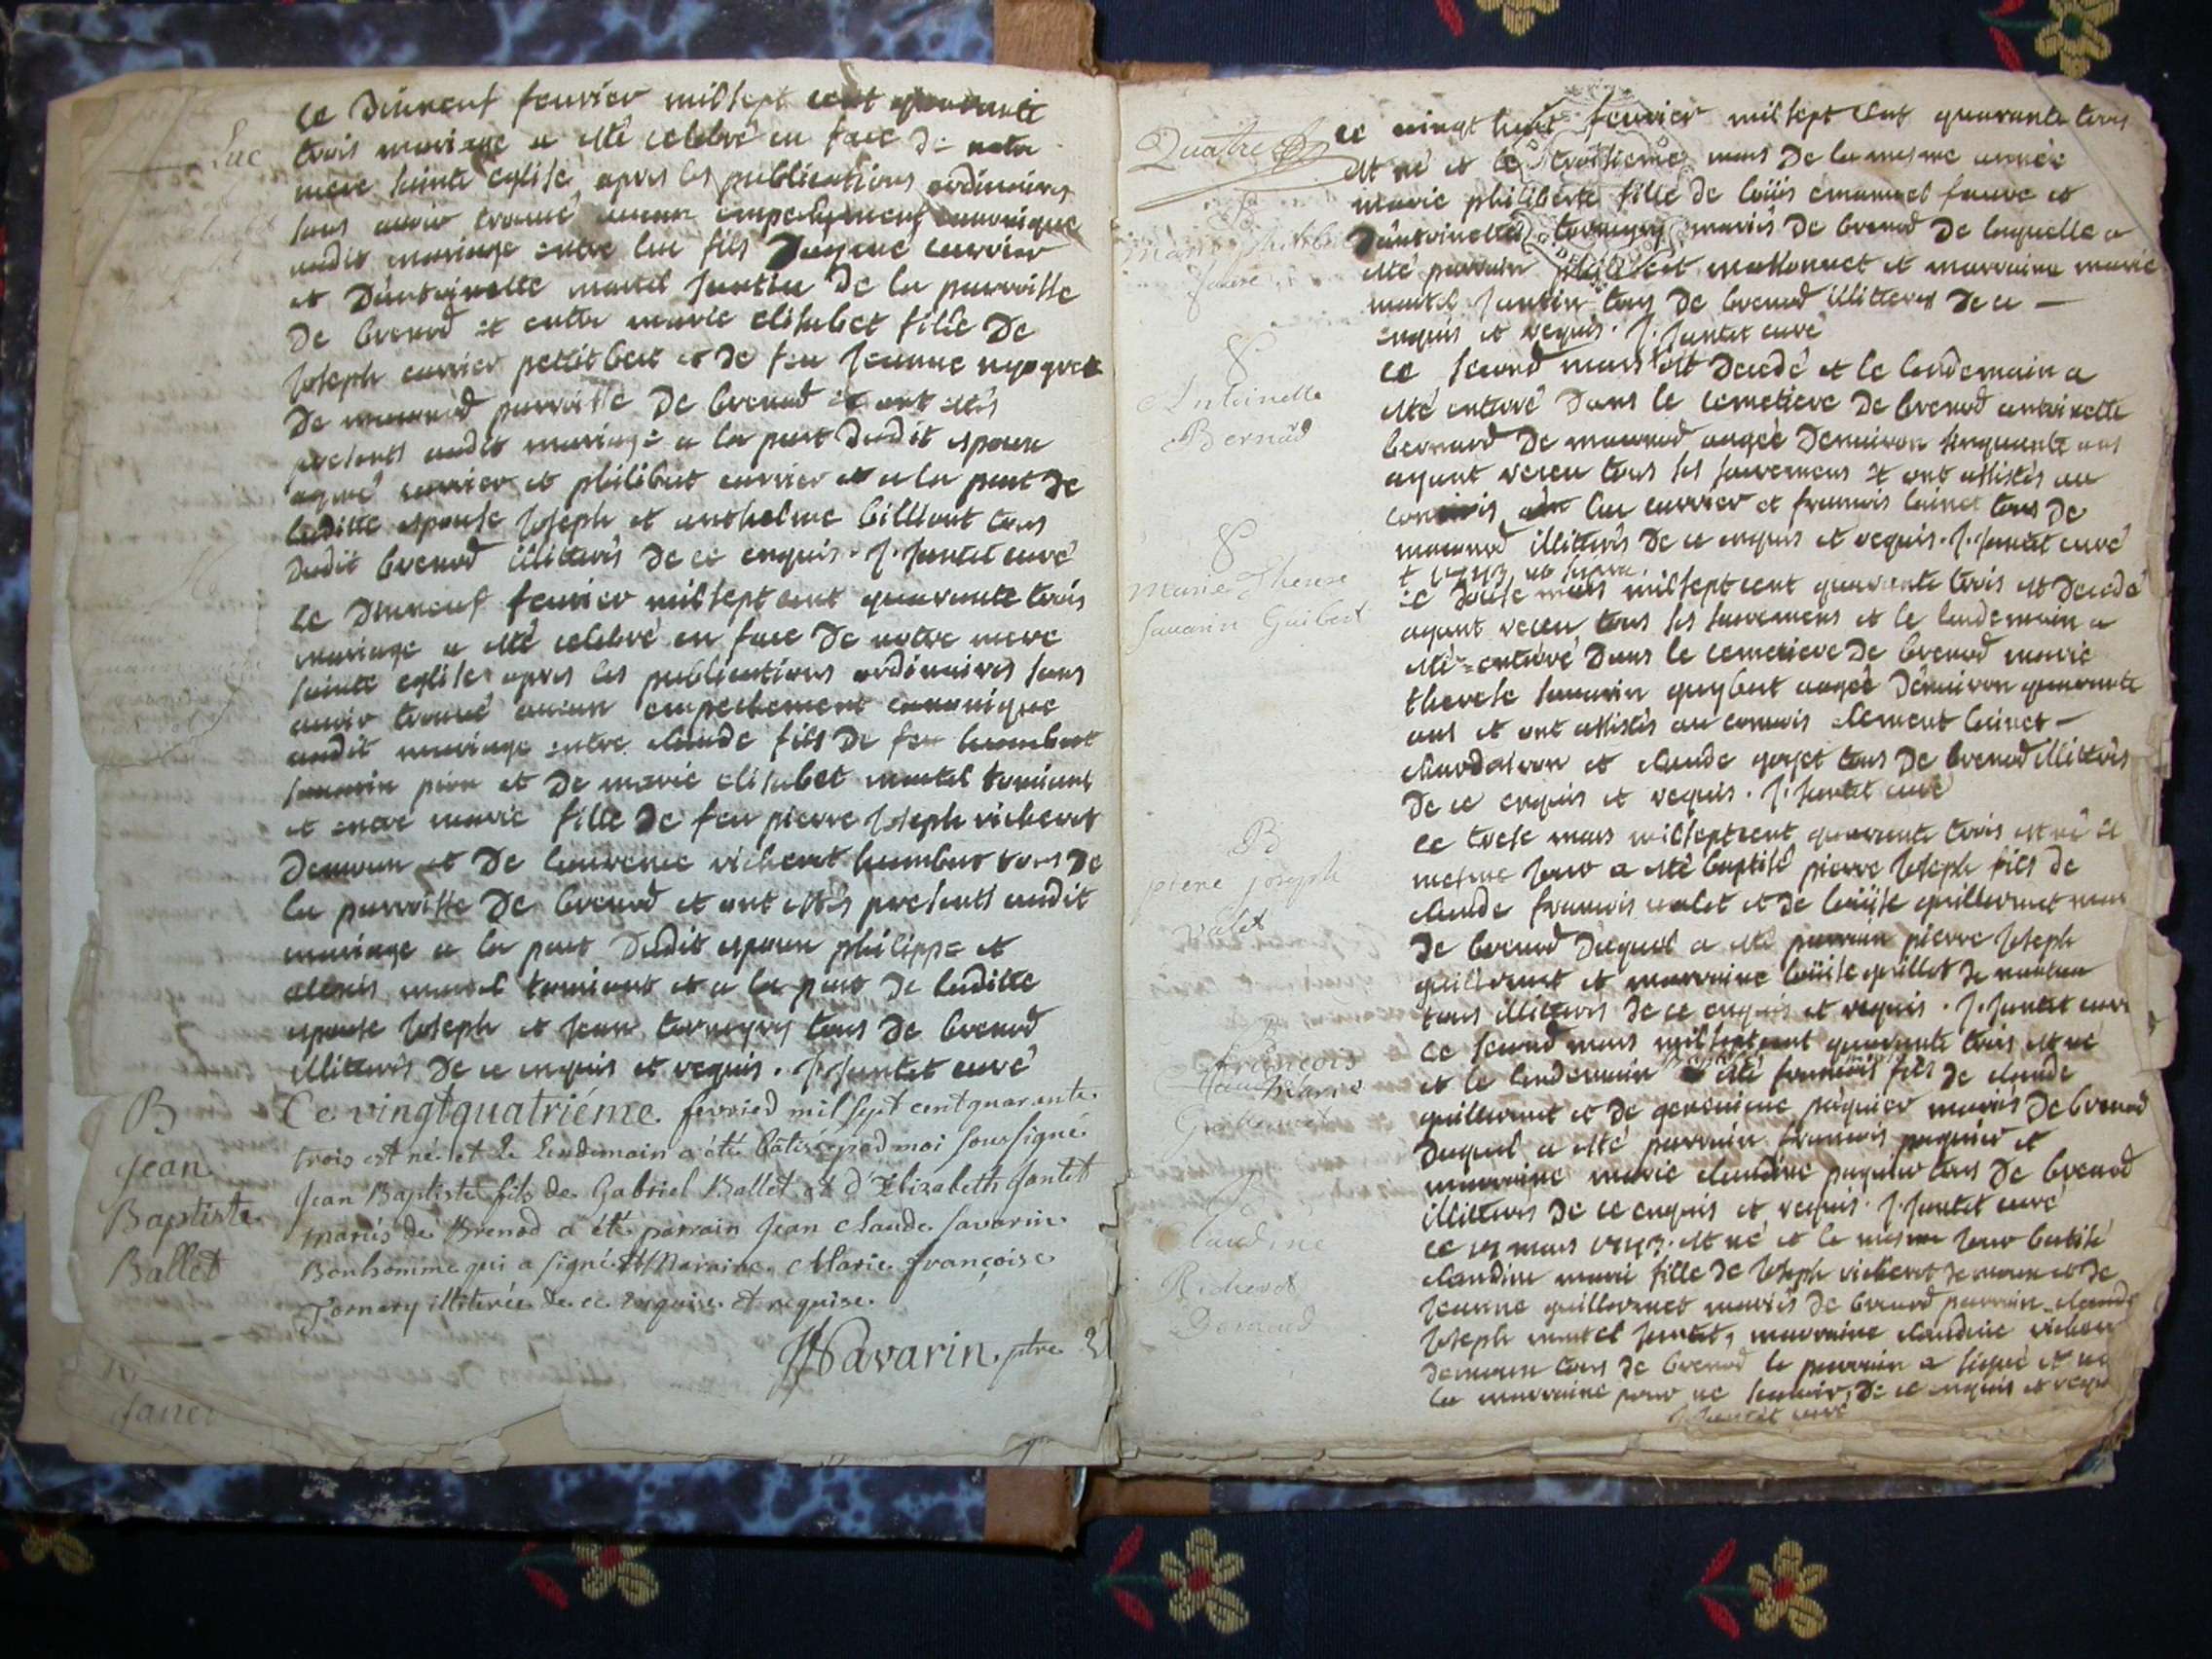 Luc
ce dixneuf feuvrier mil sept cent quarante
trois mariage a esté celebré en face de notre
mere sainte eglise apres les publications ordinaires
sans avoir trouvé aucun empechement canonique
audit mariage entre luc fils Daymé currier
et Dantoinette martel Jantin De la parroisse
De brenod et entre marie elisabet fille De
Joseph currier pettit bert et de feu Jeanne
De macornod parroisse De brenod et ont estés
presents audit mariage a la part dudit espoux
aymé currier et philibert currier et a la part de
laditte espouse Joseph et anthelme billiont tous
dudit brenod illitterés de ce enquis. J. Jantet curé
ce dixneuf feuvrier mil sept cent quarante trois
mariage a esté celebré en face de notre mere
sainte eglise apres les publications ordinaires sans
avoir trouvé aucun empechement canonique
audit mariage entre claude fils de feu humbert
savarin et de marie elisabet martel
et entre marie fille de feu pierre Joseph richerot
et de laurence richerot humbert tous de
la parroisse De brenod et ont estés presents audit
mariage a la part dudit espoux philippe et
alexis martel et a la part de laditte
espouse Joseph et Jean tornery tous de brenod
illitterés de ce enquis et requis. J. Jantet curé
B
Jean
Baptiste
Ballet
Ce vingtquatriéme fevried mil sept cent quarante
trois est né et le lendemain a été batisé pad moi soussigné
Jean Baptiste fils de Gabriel Ballet et d'Elizabeth Jantet
mariés de Brenod a été parrain Jean claude Savarin
Bonhomme qui a signé et Maraine Marie françoise
Tornery illiterée de ce enquise et requise.
Savarin, ptre
Quatre
Marie Philiberte
faure
ce vingt huit feuvrier mil sept cent quarante trois
est né et le troisieme mars De la mesme année
marie philiberte fille de loüis emanuel faure et
Dantoinette tornery mariés De brenod De laquelle a
esté parrain philibert et marraine marie
martel Jantin tous de brenod illitterés de ce
enquis et requis. J. Jantet curé
Antoinette
Bernad
ce second mars est decedé et le lendemain a
esté enterré dans le cemetiere De brenod antoinette
bernard De macornod augée denviron cinquante ans
ayant receu tous ses sacremens et ont assistés au
convois luc currier et francois tous de
macornod illitterés de ce enquis et requis. J. Jantet curé
Marie Therese
Savarin Guibert
ce douse mars mil sept cent quarante trois est decedé
ayant receu tous ses sacremens et le lendemain a
esté enterré dans le cemetiere De brenod marie
therese savarin guybert augée denviron quarante
ans et ont assistés au convois clement
et claude goyet tous de brenod illitterés
De ce enquis et requis. J. Jantet curé
B
pierre joseph
valet
ce trese mars mil sept cent quarante trois est né et
mesme Jour a esté baptisé pierre Joseph fils de
claude francois valet et de loüise guillermet
De brenod duquel a esté parrain pierre Joseph
guillermet et marraine loüise
tous illitterés de ce enquis et requis. J. Jantet curé
B
françois
ce second mars mil sept cent quarante trois est né
et le lendemain baptisé esté francois fils de claude
guillermet et de genevieve paquier mariés de brenod
duquel a esté parrain francois paquier et
marraine marie claudine paquier tous De brenod
illitterés de ce enquis et requis. J. Jantet curé
Claudine
Richerot
ce mars 1743 est né et le mesme Jour batisé
claudine marie fille de Joseph richerot et de
Jeanne guillermet mariés de brenod parrain claude
Joseph martel Jantet, marraine claudine
tous de brenod le parrain a signé et
la marraine pour ne scavoir, de ce enquis et
J. Jantet curé